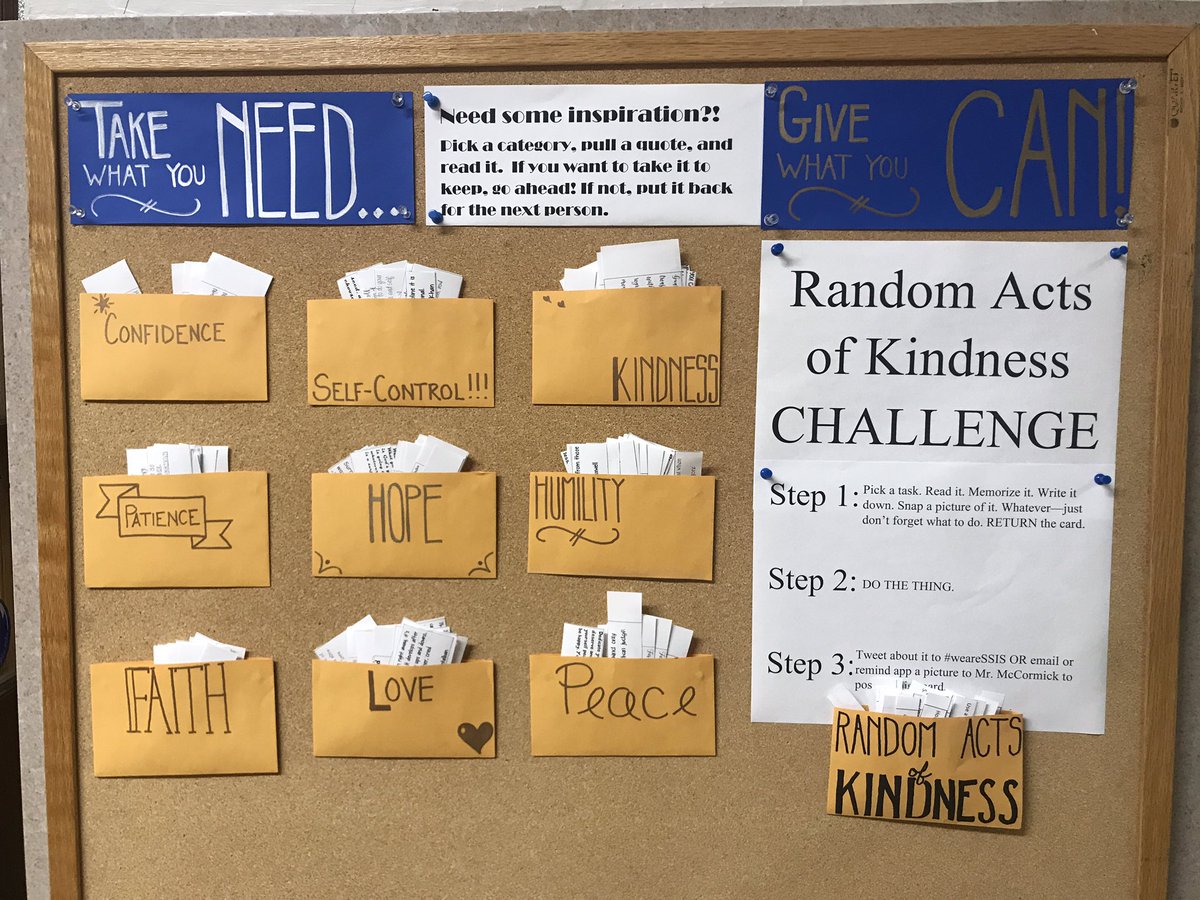 TAKE
WHAT YOU
NEED...
Need some inspiration?!
Pick a category, pull a quote, and
read it. If you want to take it to
keep, go ahead! If not, put it back
for the next person.
GIVE
WHAT YOU
CAN!
CONFIDENCE
SELF-CONTROL!!!
KINDNESS
PATIENCE
HOPE
HUMILITY
FAITH
LOVE
Peace
Random Acts
of Kindness
CHALLENGE
Step 1: Pick a task. Read it. Memorize it. Write it
down. Snap a picture of it. Whatever—just
don't forget what to do. RETURN the card.
Step 2: DO THE THING.
Step 3: Tweet about it to #weareSSIS OR email or
remind app a picture to Mr. McCormick to
card.
RANDOM ACTS
of
KINDNESS